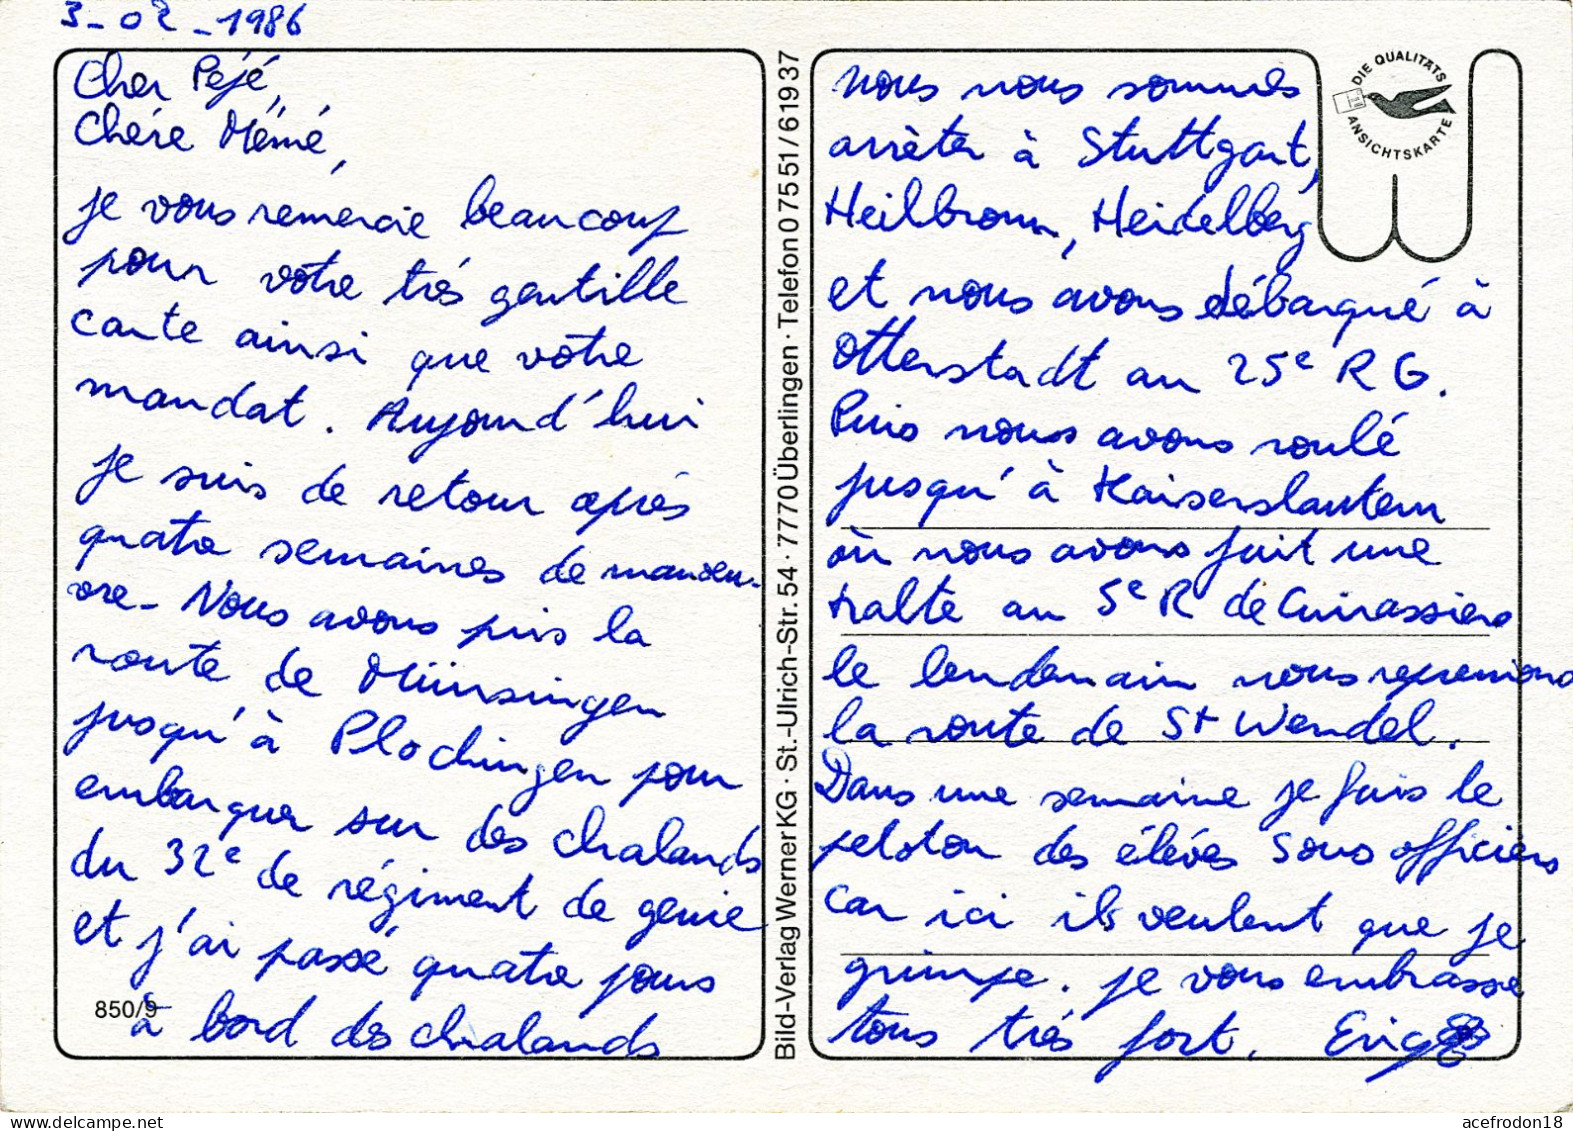 3-02-1986
Cher Péjé,
Chère Mémé,
je vous remercie beaucoup
pour votre très gentille
carte ainsi que votre
mandat. Aujourd'hui
je suis de retour après
quatre semaines de manoeu-
vre - Nous avons pris la
route de Münsingen
jusqu'à Plochingen pour
embarquer sur des chalands
du 32e de régiment de génie
et j'ai passé quatre jours
à bord des chalands
850/9
Bild-Verlag Werner KG · St.-Ulrich-Str. 54 · 7770 Überlingen · Telefon 0 75 51 / 619 37
DIE QUALITÄTS
ANSICHTSKARTE
nous nous sommes
arrèter à Stuttgart,
Heilbronn, Heidelberg
et nous avons débarqué à
Otterstadt au 25e R G.
Puis nous avons roulé
jusqu'à Kaiserslautern
où nous avons fait une
halte au 5e R de Cuirassiers
le lendemain nous reprenions
la route de St Wendel.
Dans une semaine je fais le
peloton des élèves sous officiers
car ici ils veulent que je
grimpe. je vous embrasse
tous très fort. Eric
acefrodon18
www.delcampe.net